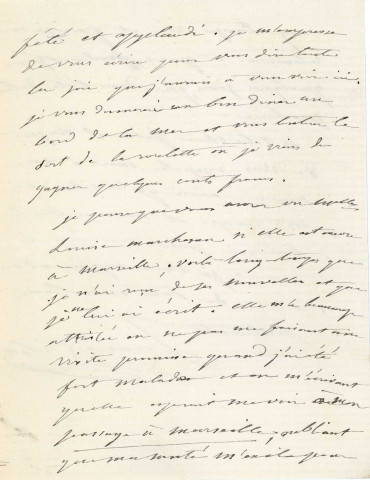 fété et applaudi. je m'empresse
de vous écrire pour vous dire toute
la joie que j'aurais à vous voir ici.
je vous donnerai un bon diner au
bord de la mer et vous tentrez le
sort de la roulette où je viens de
gagner quelques cents francs.
je pense que vous avez vu melle
Louise marcheson si elle est encore
à marseille. voilà longtemps que
je n'ai reçu de ses nouvelles et que
je ne lui ai écrit. elle m'a beaucoup
attristée en ne pas me faisant une
visite promise quand j'ai été
fort malade et en m'écrivant
qu'elle espérait me voir à mon
passage à marseille, oubliant
que ma santé m'exila pour